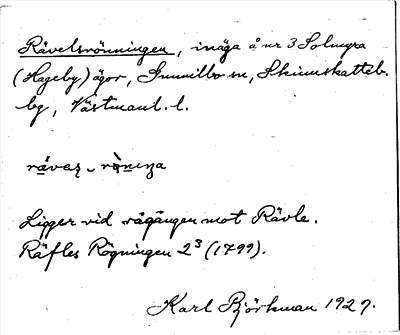 Rävelsrönningen, inäga å nr 3 Solmyra
(Hageby) ägor, Gunnilbo sn, Skinnskatteb.
bg, Västmanl. l.
Ligger vid rågången mot Rävle.
Räfles Rögningen 2³ (1799).
Karl Björkman 1927.